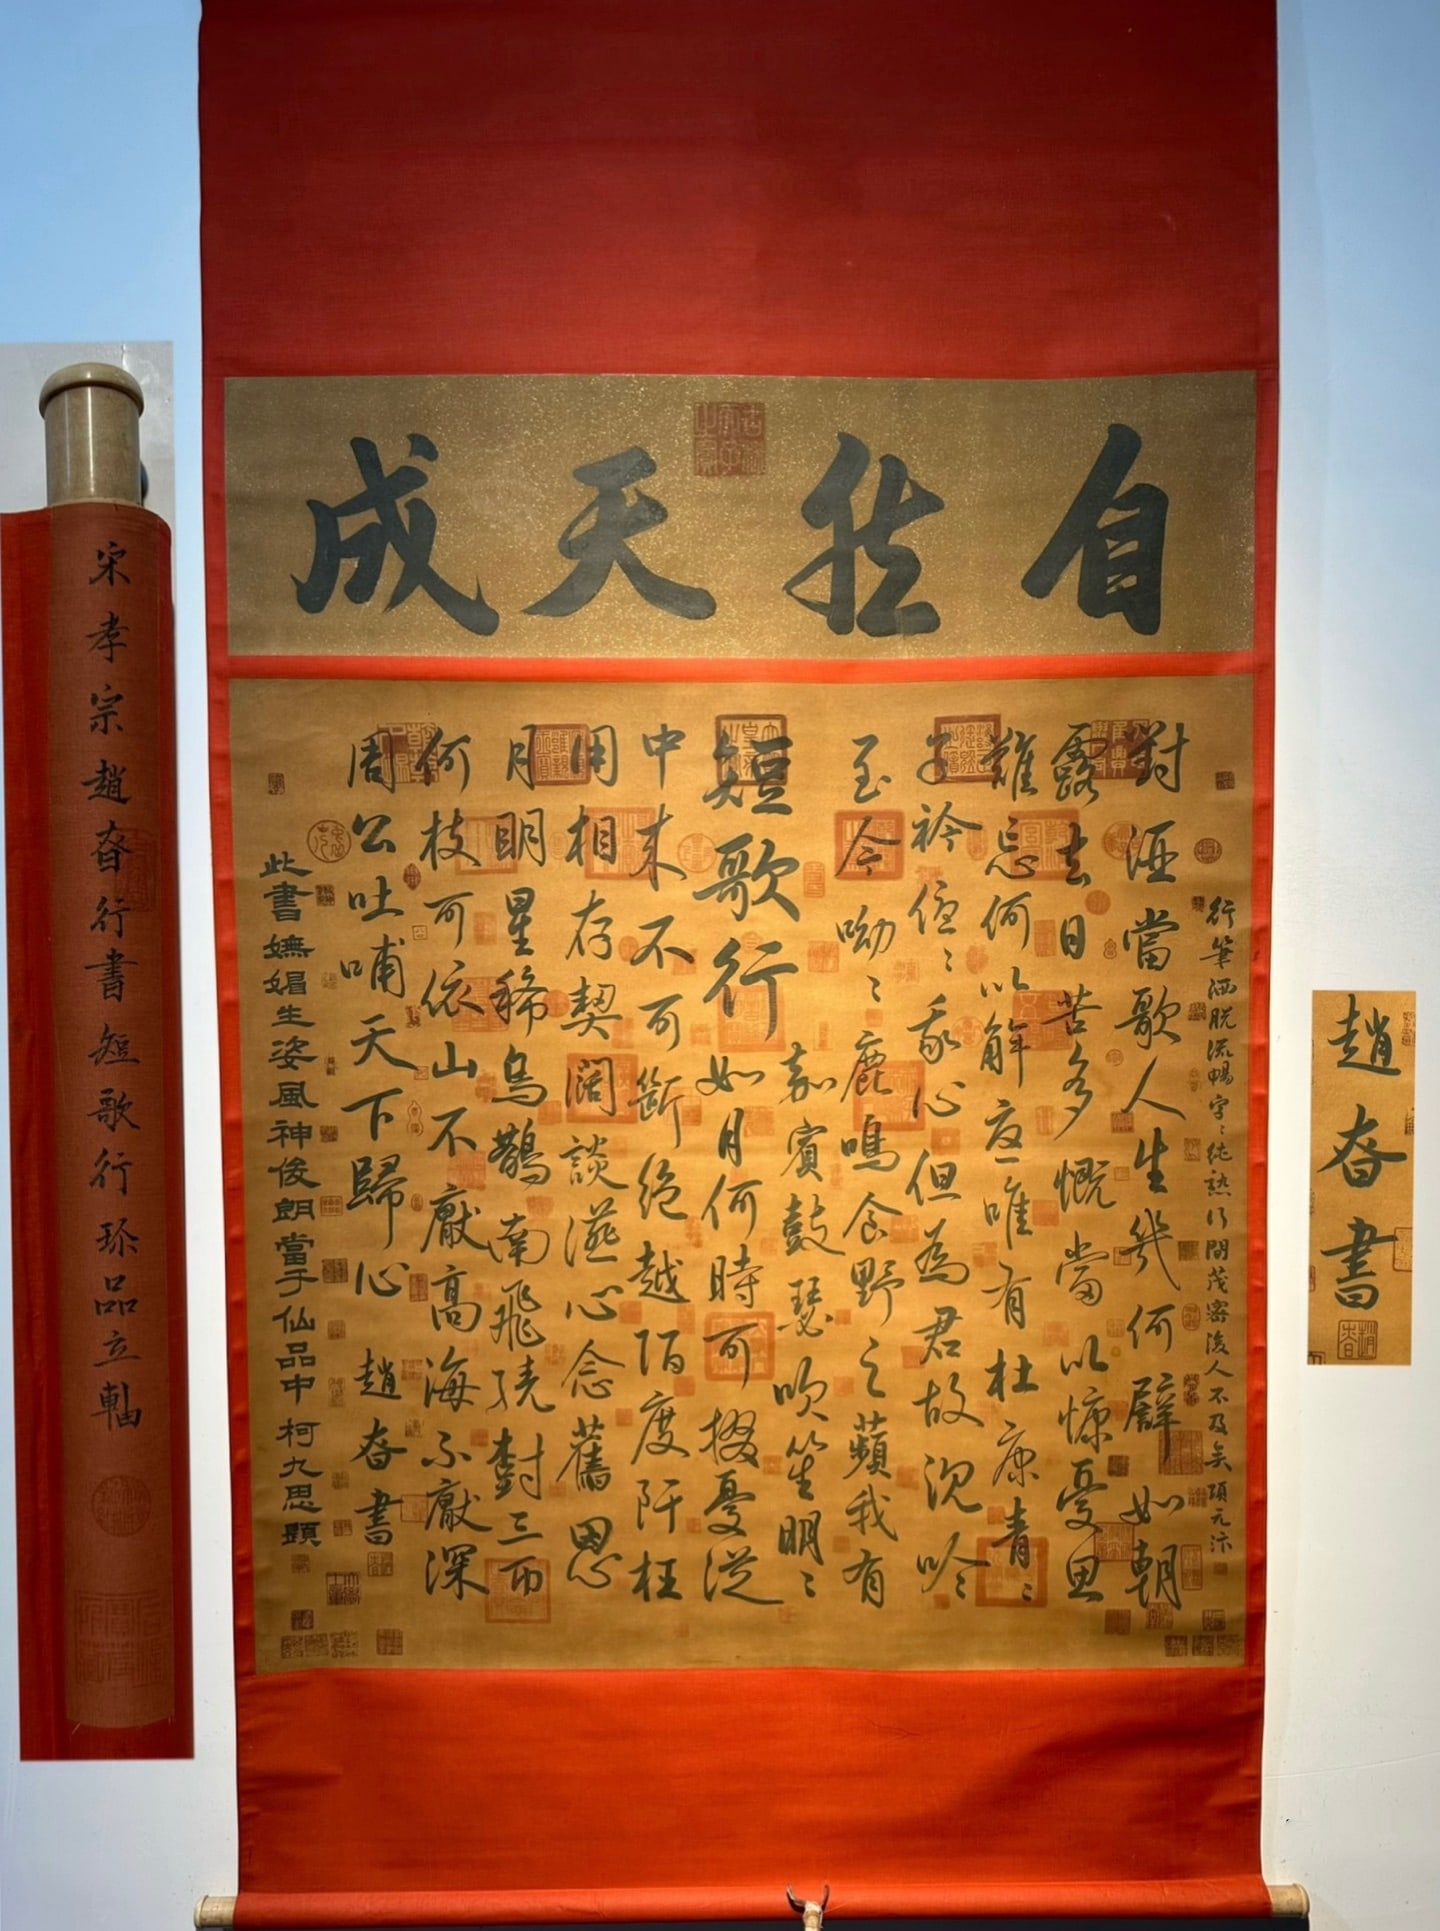 自然天成
行筆洒脱流暢字〻純熟行間茂密後人不及矣項元汴
對酒當歌人生幾何譬如朝
露去日苦多慨當以慷憂思
難忘何以解憂唯有杜康青〻
子衿悠〻我心但為君故沉吟
至今呦〻鹿鳴食野之蘋我有
嘉賓鼓瑟吹笙明〻
短歌行如月何時可掇憂從
中來不可斷絕越陌度阡枉
用相存契闊談讌心念舊恩
月明星稀烏鵲南飛繞樹三匝
何枝可依山不厭高海不厭深
周公吐哺天下歸心 趙昚書
此書嫵媚生姿風神俊朗當于仙品中柯九思題
宋孝宗趙昚行書短歌行珍品立軸
趙昚書